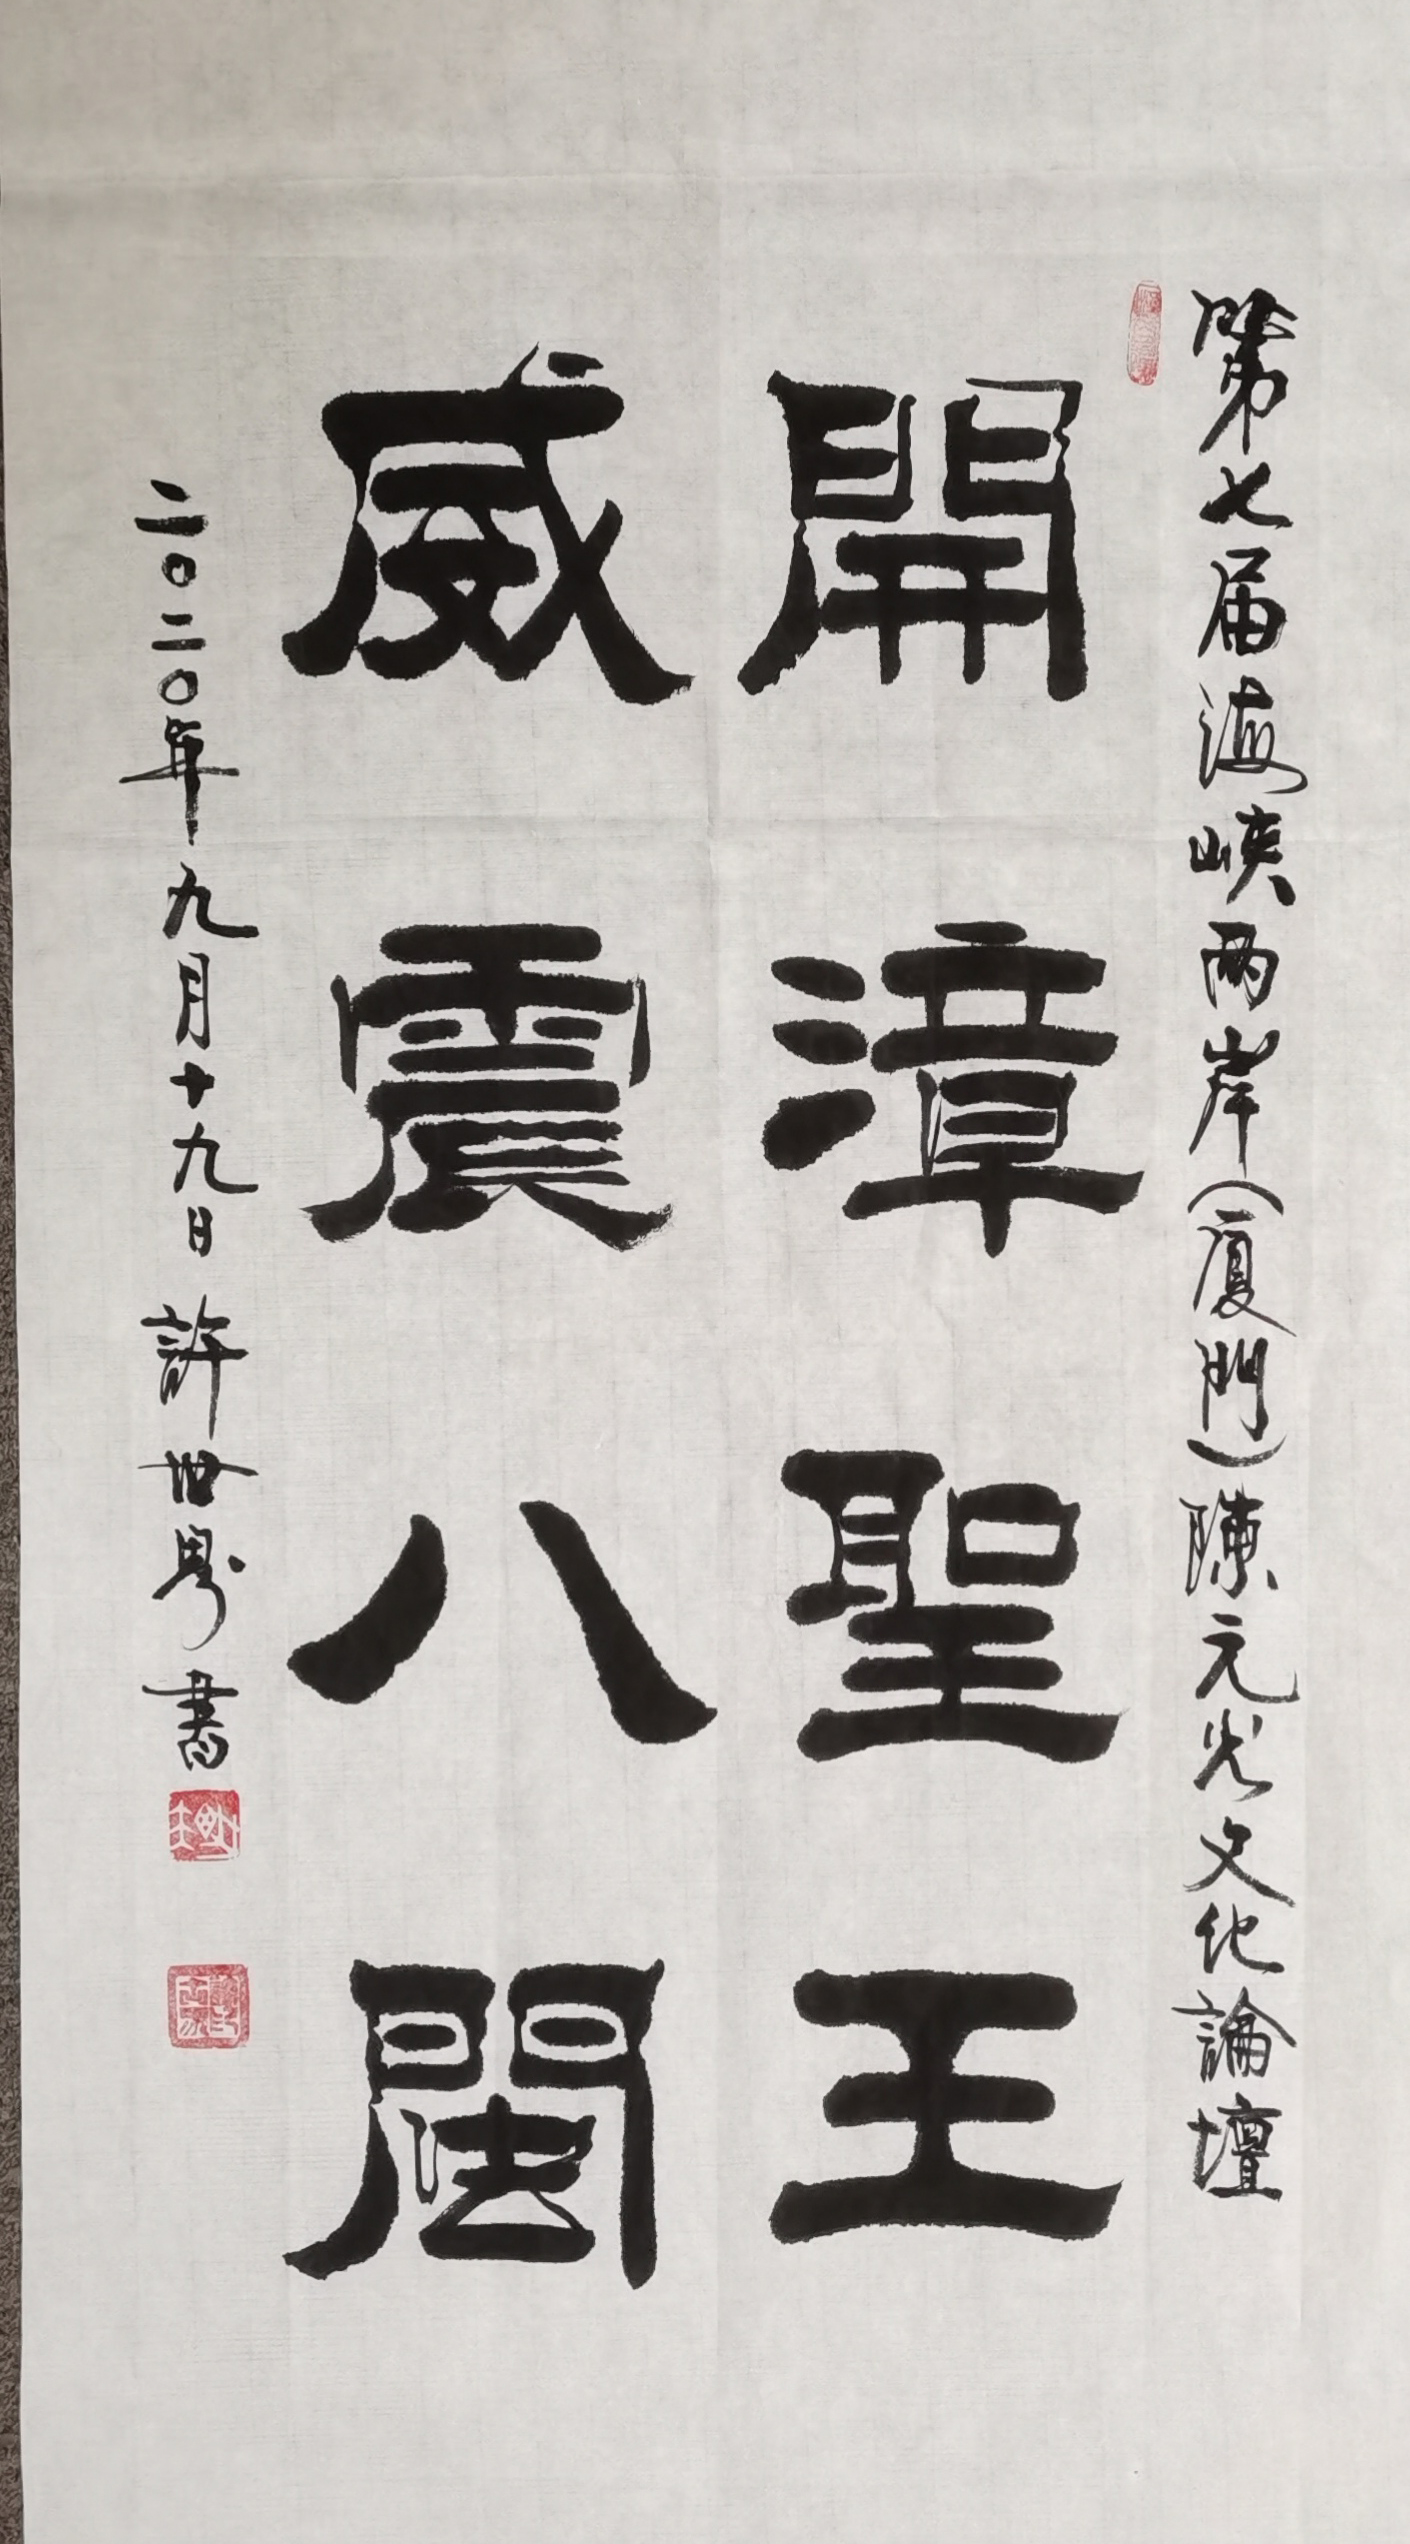 第七届海峽兩岸(厦門)陳元光文化論壇
開漳聖王
威震八閩
二〇二〇年九月十九日 許世粤書